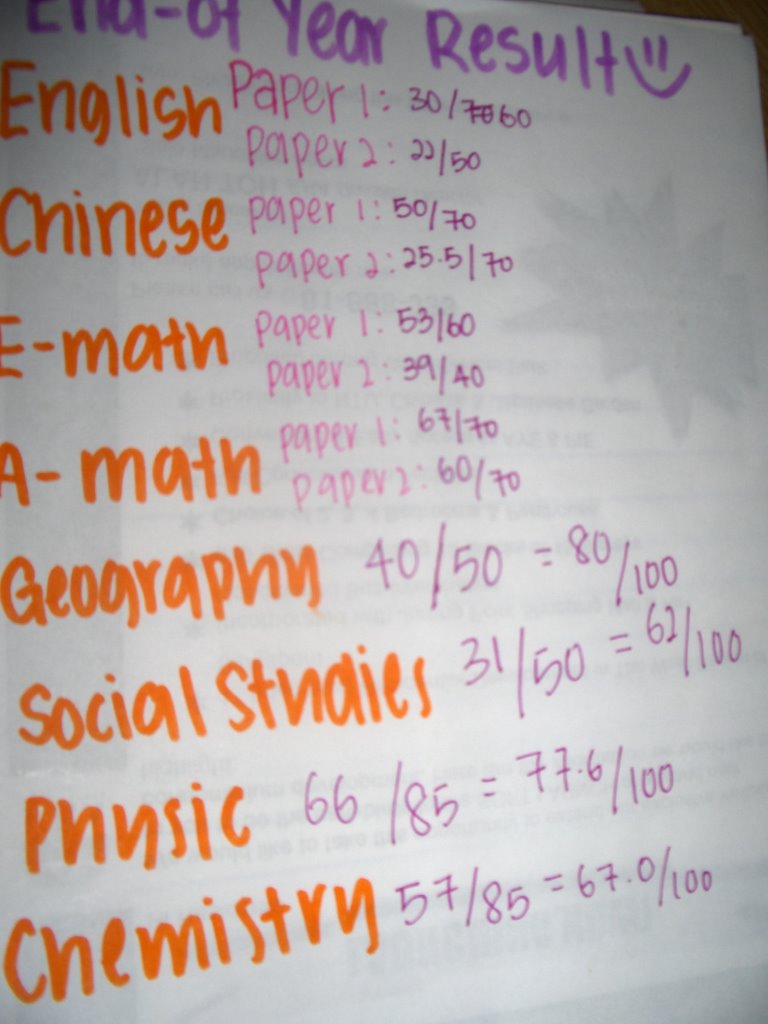 End-of Year Result
English Paper 1: 30/60
Paper 2: 22/50
Chinese Paper 1: 50/70
Paper 2: 25.5/70
E-math Paper 1: 53/60
Paper 2: 39/40
A-math Paper 1: 67/70
Paper 2: 60/70
Geography 40/50 = 80/100
Social Studies 31/50 = 62/100
Physic 66/85 = 77.6/100
Chemistry 57/85 = 67.0/100